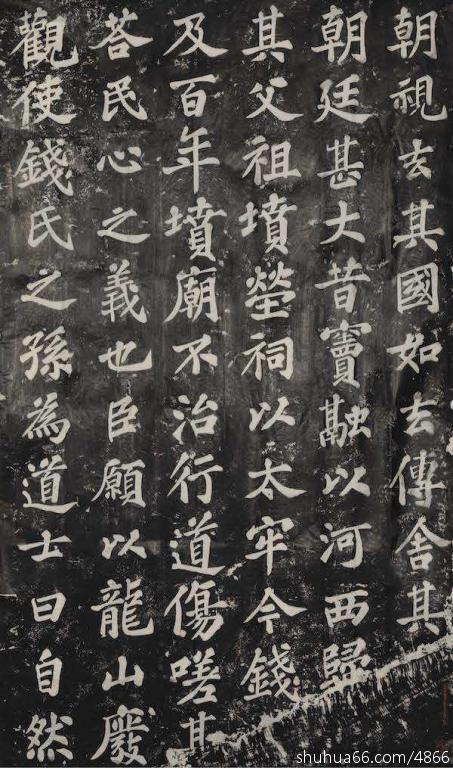 朝視去其國如去傳舍其
朝廷甚大昔竇融以河西歸
其父祖墳塋祠以太牢今錢
及百年墳廟不治行道傷嗟甚
荅民心之義也臣願以龍山廢
觀使錢氏之孫為道士曰自然
shuhua66.com/4866